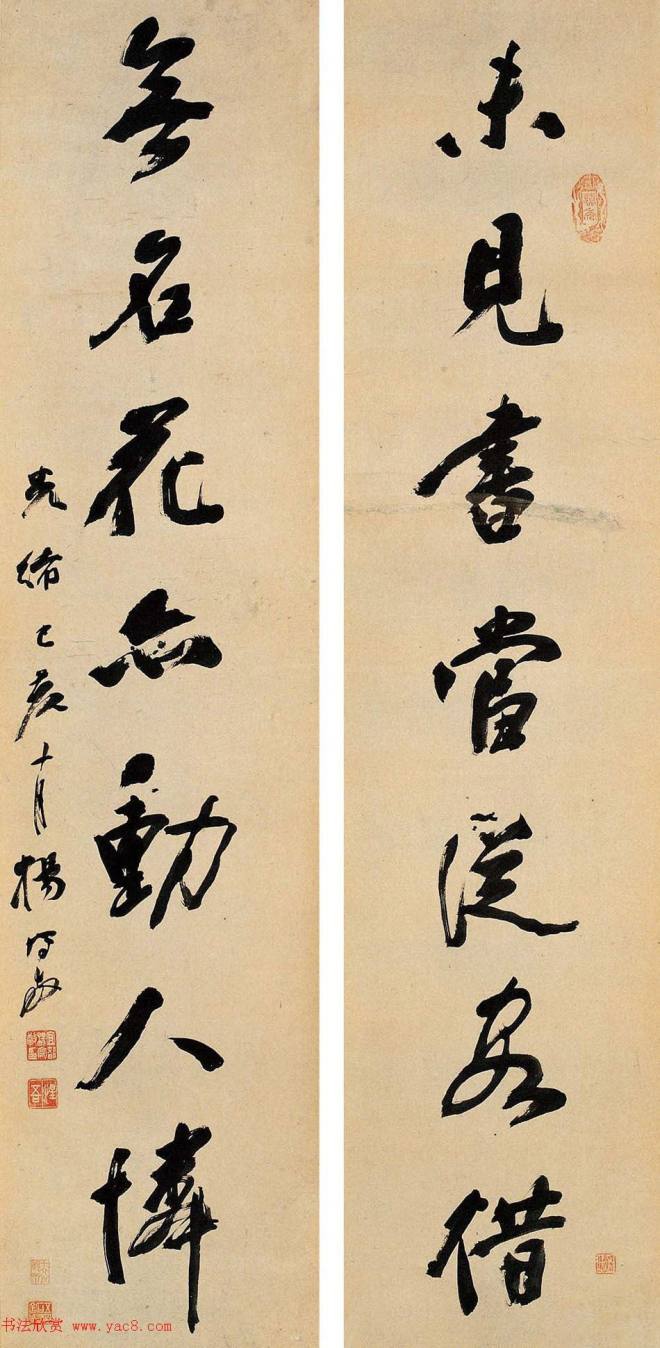 未見書當從客借
無名花亦動人憐
光緒己亥十月楊守敬
书法欣赏 www.yac8.com